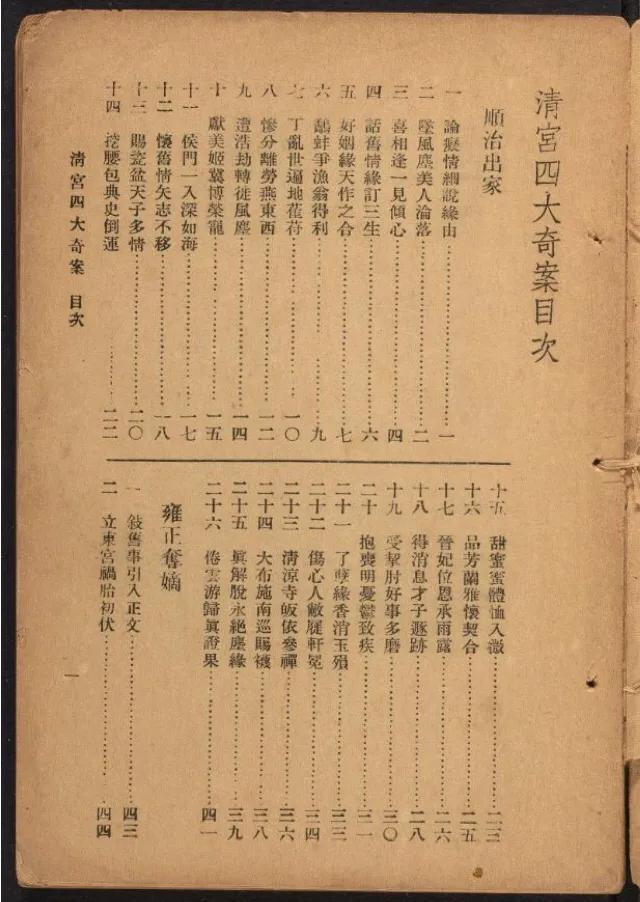 清宮四大奇案目次
順治出家
一 論癡情細說緣由 一
二 墜風塵美人淪落 二
三 喜相逢一見傾心 四
四 話舊情緣訂三生 六
五 好姻緣天作之合 七
六 鷸蚌爭漁翁得利 九
七 丁亂世遍地萑苻 一〇
八 慘分離勞燕東西 一二
九 遭浩劫轉徙風塵 一四
十 獻美姬冀博榮寵 一五
十一 侯門一入深如海 一七
十二 懷舊情矢志不移 一八
十三 賜瓷盆天子多情 二〇
十四 挖腰包典史倒運 二二
十五 甜蜜蜜體恤入微 二三
十六 品芳蘭雅懷契合 二五
十七 晉妃位恩承雨露 二六
十八 得消息才子遯跡 二八
十九 受掣肘好事多磨 三〇
二十 抱喪明憂鬱致疾 三一
二十一 了孽緣香消玉殞 三三
二十二 傷心人敝屣軒冕 三四
二十三 清涼寺皈依參禪 三六
二十四 大布施南巡賜襪 三八
二十五 眞解脫永絕塵緣 三九
二十六 倦雲游歸眞證果 四一
雍正奪嫡
一 敍舊事引入正文 四三
二 立東宮禍胎初伏 四四
清宮四大奇案 目次
一